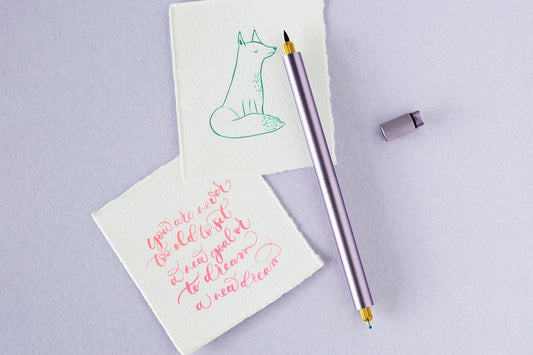 you are never
too old to set
a new goal or
to dream
a new dream